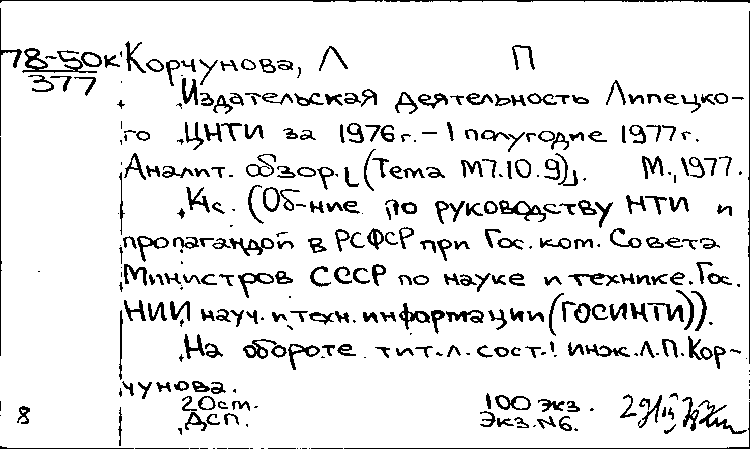 78-50к Корчунова, Л П
377
Издательская деятельность Липецко-
го ЦНТИ за 1976 г. - I полугодие 1977 г.
Аналит. обзор. [(Тема М7.10.9)]. М., 1977.
(Об-ние по руководству НТИ и
пропагандой в РСФСР при Гос. ком. Совета
Министров СССР по науке и технике. Гос.
НИИ науч. и техн. информации (ГОСИНТИ)).
На обороте тит. л. сост.: инж. Л.П. Кор-
чунова.
20 ст. 100 экз.
8 ДСП. Экз. №6.